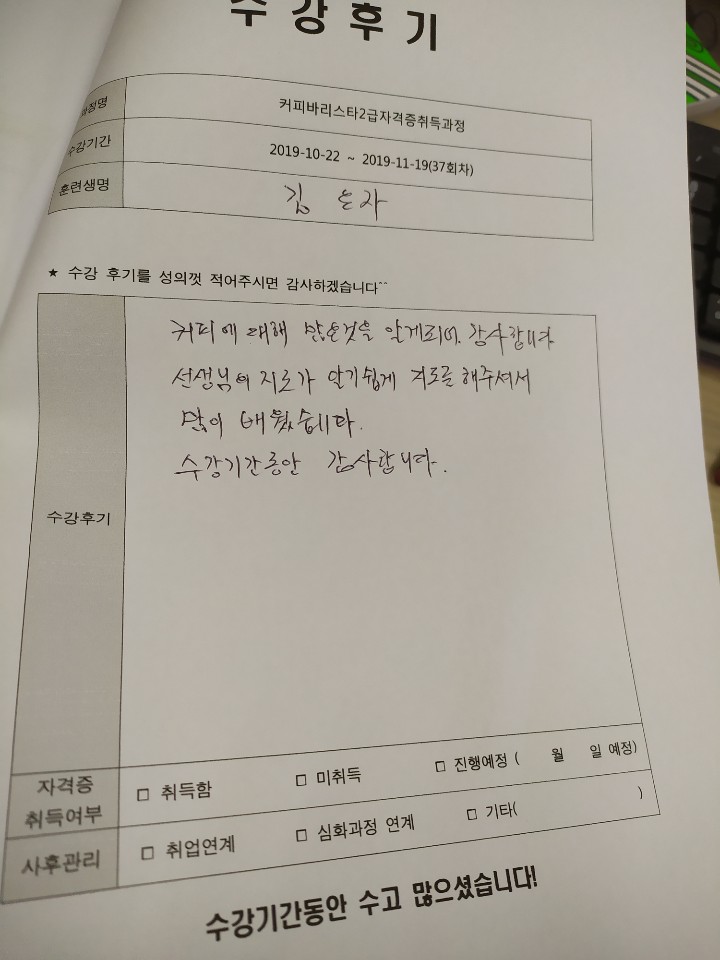 수강후기
과정명 커피바리스타2급자격증취득과정
수강기간 2019-10-22 ~ 2019-11-19(37회차)
훈련생명 김
★ 수강 후기를 성의껏 적어주시면 감사하겠습니다^^
커피에 대해 많은것을 알게되어. 감사합니다
선생님의 지도가 알기쉽게 지도를 해주셔서
많이 배웠습니다.
수강기간동안 감사합니다.
수강후기
자격증
취득여부
□ 취득함 □ 미취득 □ 진행예정 ( 월 일 예정)
사후관리 □ 취업연계 □ 심화과정 연계 □ 기타( )
수강기간동안 수고 많으셨습니다!